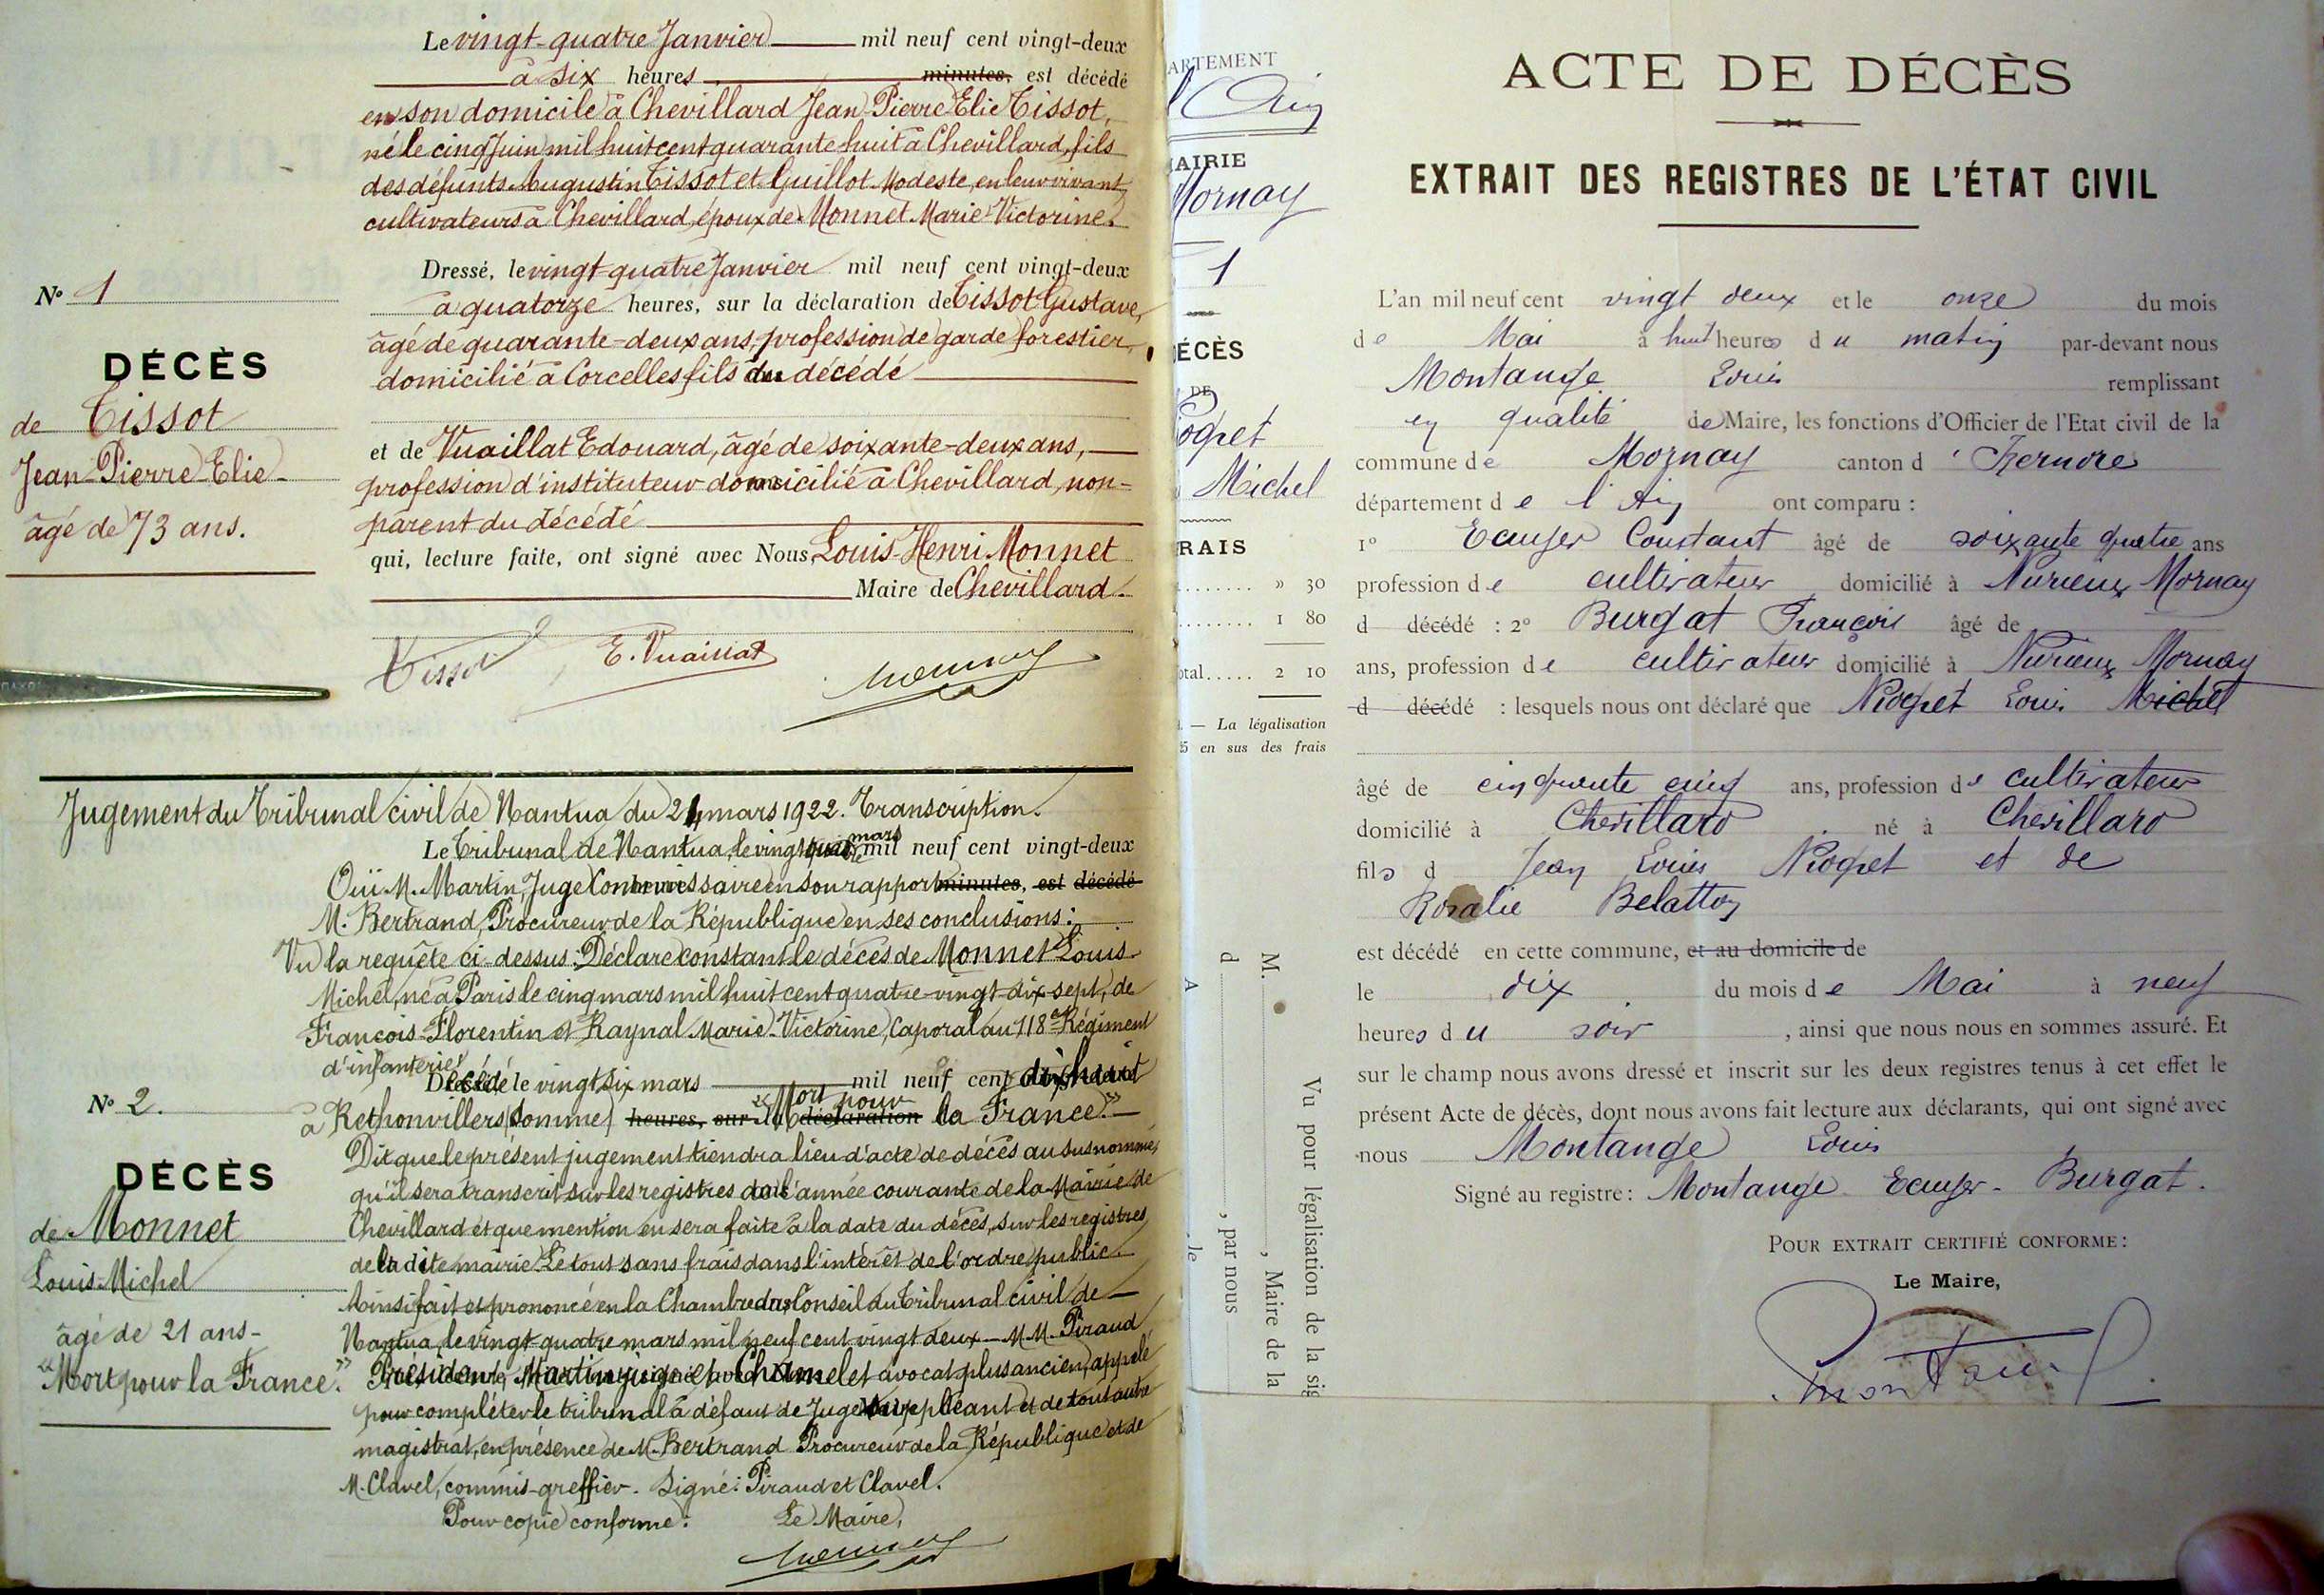 Le vingt-quatre Janvier mil neuf cent vingt-deux
à six heures minutes, est décédé
en son domicile à Chevillard Jean-Pierre-Elie Tissot,
né le cinq Juin mil huit cent quarante huit à Chevillard, fils
des défunts Augustin Tissot et Guillot Modeste, en leur vivant
cultivateurs à Chevillard, époux de Monnet Marie-Victorine.
Dressé, le vingt-quatre Janvier mil neuf cent vingt-deux
à quatorze heures, sur la déclaration de Tissot Gustave,
âgé de quarante-deux ans, profession de garde forestier,
domicilié à Corcelles fils du décédé
et de Vuaillat Edouard, âgé de soixante-deux ans,
profession d'instituteur domicilié à Chevillard, non-
parent du décédé
qui, lecture faite, ont signé avec Nous, Louis-Henri Monnet
Maire de Chevillard.
Tissot E. Vuaillat
No 1
DÉCÈS
de Tissot
Jean-Pierre-Elie
âgé de 73 ans.
Jugement du Tribunal civil de Nantua du 24 mars 1922. Transcription.
Le Tribunal de Nantua, le vingt quatre mars mil neuf cent vingt-deux
Ouï M. Martin, Juge Commissaire en son rapport minutes, est décédé
M. Bertrand, Procureur de la République en ses conclusions:
Vu la requête ci-dessus: Déclare constant le décès de Monnet Louis-
Michel, né à Paris le cinq mars mil huit cent quatre-vingt-dix-sept, de
François-Florentin et Raynal Marie-Victorine, Caporal au 118e Régiment
d'infanterie
Décédé le vingt six mars mil neuf cent dix huit
à Rethonvillers (Somme) heures, sur la déclaration « Mort pour la France. »
Dit que le présent jugement tiendra lieu d'acte de décès au susnommé,
qu'il sera transcrit sur les registres de l'année courante de la Mairie de
Chevillard et que mention en sera faite à la date du décès, sur les registres
de la dite mairie. Le tout sans frais dans l'intérêt de l'ordre public.
Ainsi fait et prononcé en la Chambre du Conseil du Tribunal civil de
Nantua, le vingt-quatre mars mil neuf cent vingt deux - M.M. Piraud
Président, Martin juge et Chanel et avocat plus ancien, appelé
pour compléter le tribunal à défaut de Juge suppléant et de tout autre
magistrat, en présence de M. Bertrand Procureur de la République et de
M. Clavel, commis-greffier. Signé: Piraud et Clavel.
Pour copie conforme: Le Maire,
No 2.
DÉCÈS
de Monnet
Louis-Michel
âgé de 21 ans-
« Mort pour la France. »
ARTEMENT
l'Ain
AIRIE
Mornay
1
ÉCÈS
DE
ogret
Michel
RAIS
» 30
1 80
otal..... 2 10
. — La légalisation
5 en sus des frais
A , le
d , par nous
M. , Maire de la
Vu pour légalisation de la sig
ACTE DE DÉCÈS
EXTRAIT DES REGISTRES DE L'ÉTAT CIVIL
L'an mil neuf cent vingt deux et le onze du mois
de Mai à huit heures du matin par-devant nous
Montange Louis remplissant
en qualité de Maire, les fonctions d'Officier de l'Etat civil de la
commune de Mornay canton d'Izernore
département de l'Ain ont comparu :
1o Ecuyer Constant âgé de soixante quatre ans
profession de cultivateur domicilié à Nurieux Mornay
d décédé : 2o Burgat François âgé de
ans, profession de cultivateur domicilié à Nurieux Mornay
d décédé : lesquels nous ont déclaré que Niogret Louis Michel
âgé de cinquante cinq ans, profession de cultivateur
domicilié à Chevillard né à Chevillard
fils d Jean Louis Niogret et de
Rosalie Belatton
est décédé en cette commune, et au domicile de
le dix du mois de Mai à neuf
heures du soir , ainsi que nous nous en sommes assuré. Et
sur le champ nous avons dressé et inscrit sur les deux registres tenus à cet effet le
présent Acte de décès, dont nous avons fait lecture aux déclarants, qui ont signé avec
nous Montange Louis
Signé au registre: Montange - Ecuyer - Burgat.
POUR EXTRAIT CERTIFIÉ CONFORME:
Le Maire,